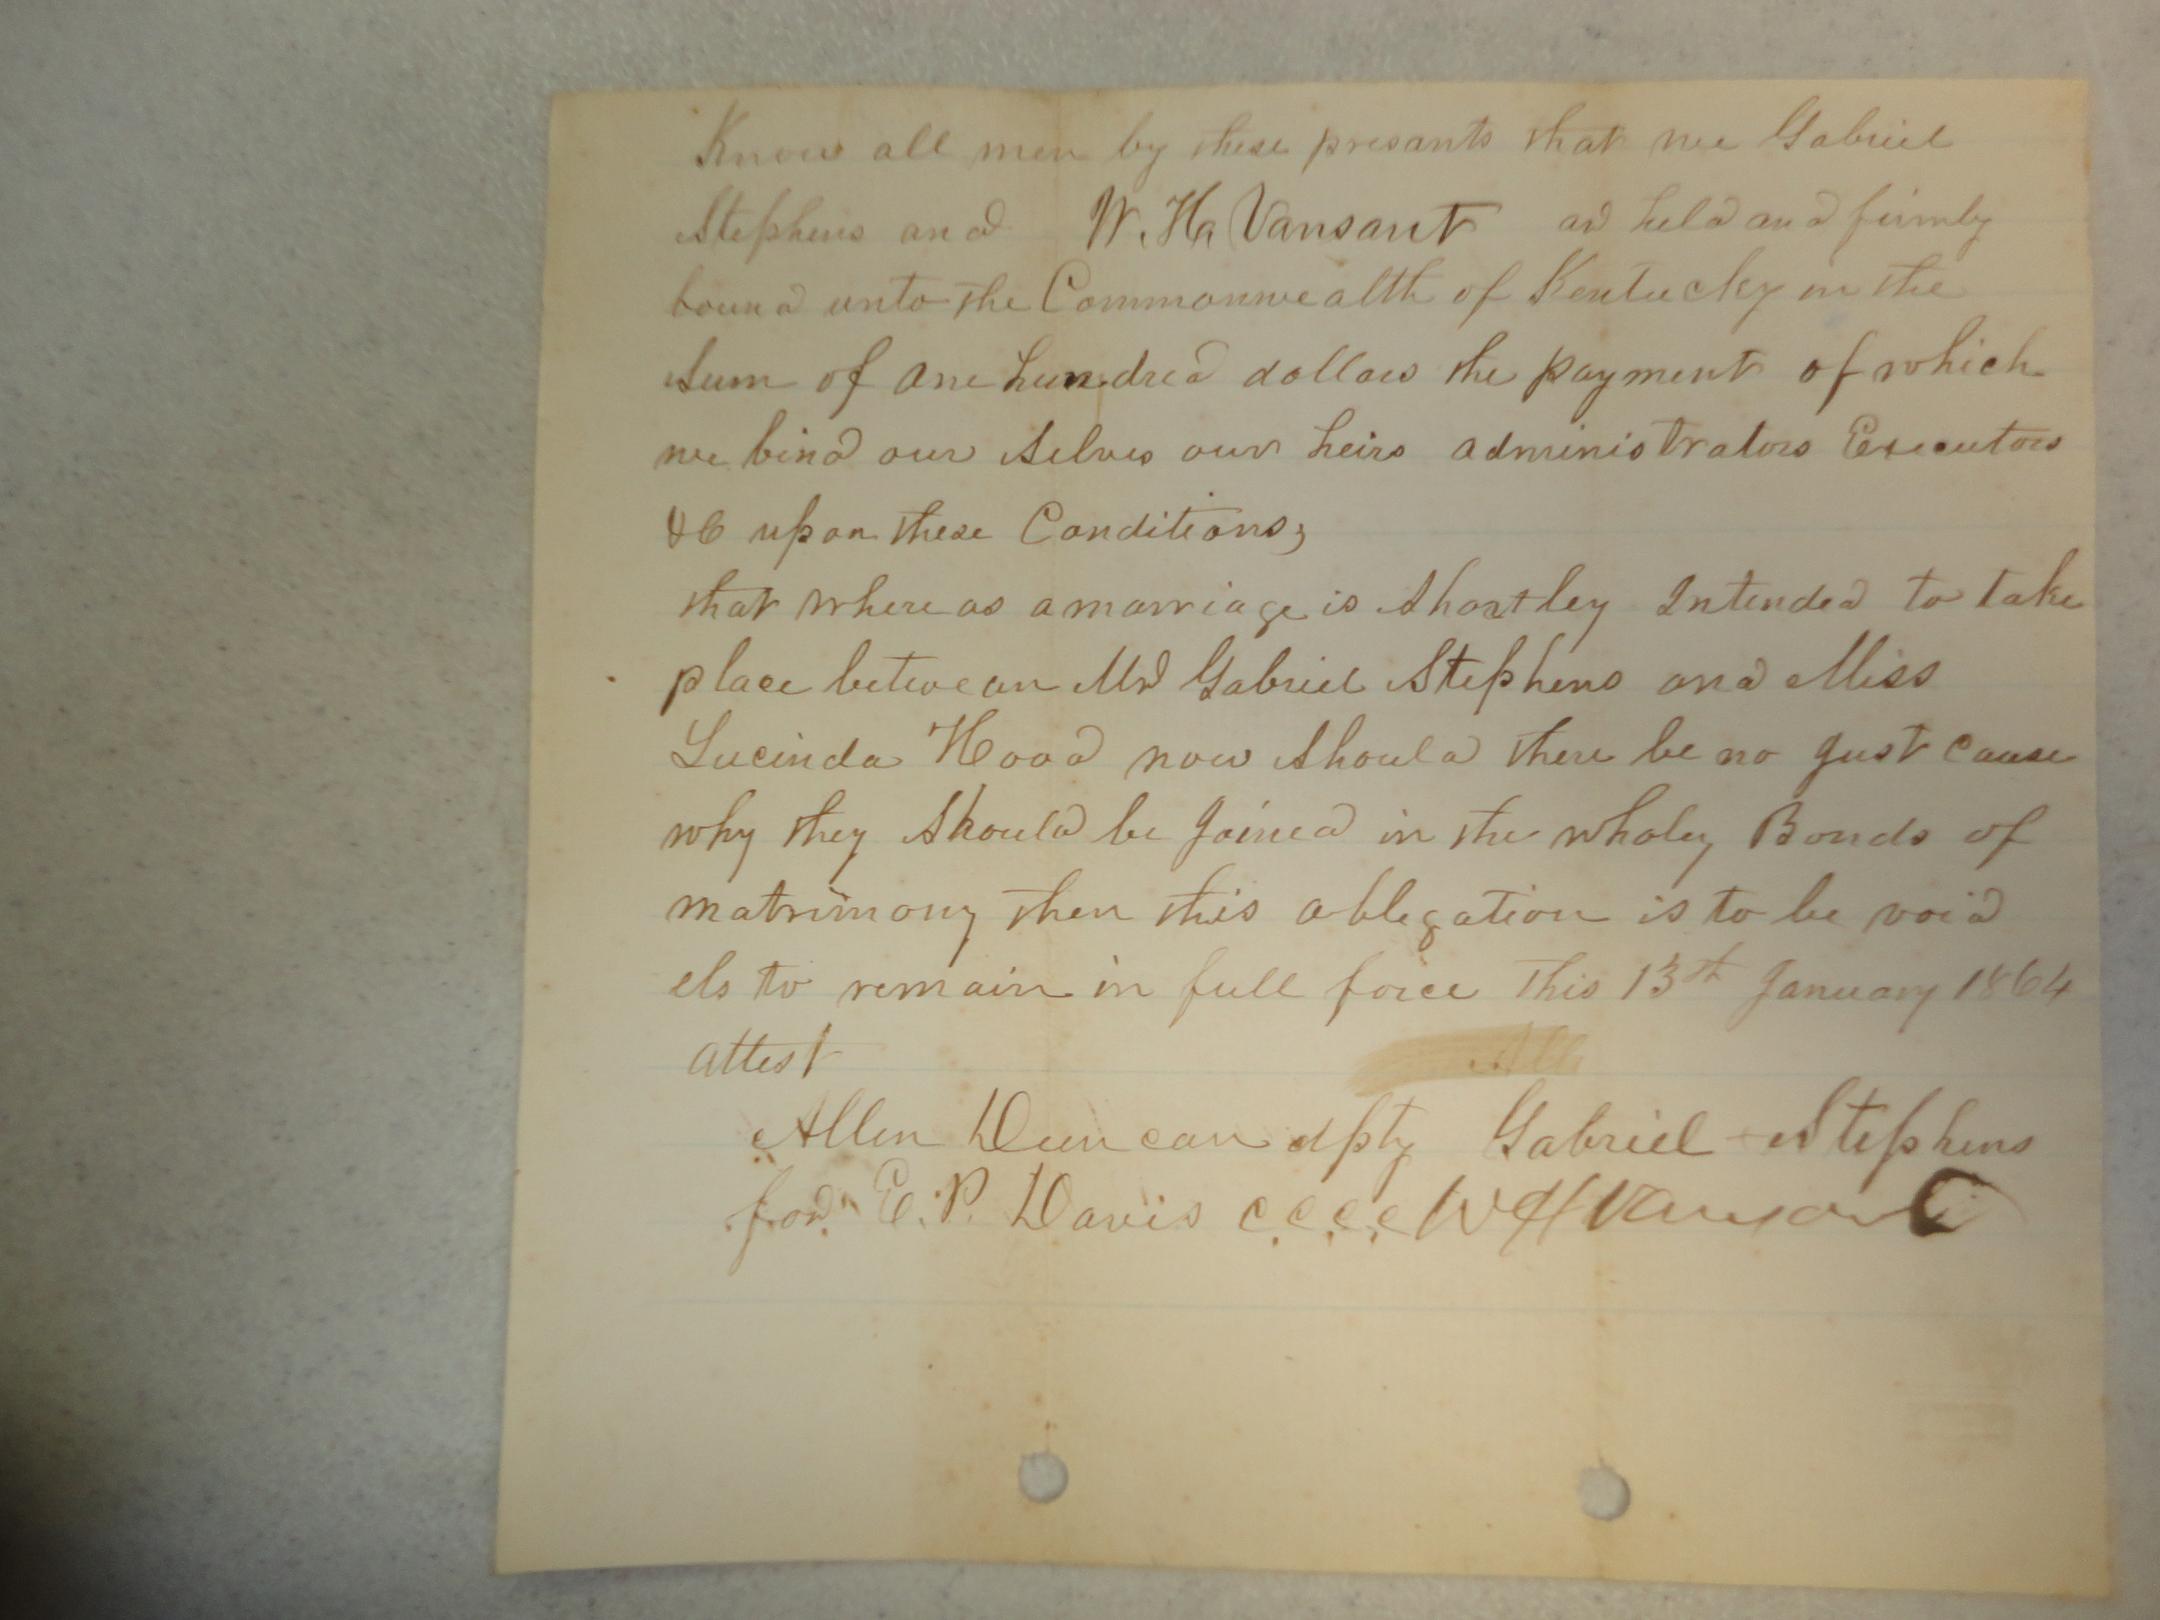 Know all men by these presants that we Gabriel
Stephens and W. H. Vansant ar held and firmly
bound unto the Commonwealth of Kentucky in the
Sum of one hundred dollars the payment of which
we bind our Selves our heirs administrators Executors
&C upon these Conditions;
that where as a marriage is Shortley Intended to take
place between Mr Gabriel Stephens and Miss
Lucinda Hood now Should there be no Just Cause
why they Should be Joined in the wholey Bonds of
matrimony then this oblegation is to be void
els to remain in full force This 13th January 1864
attest
Allen Duncan dpty Gabriel Stephens
for E. P. Davis C.C.C.C W H Vansant